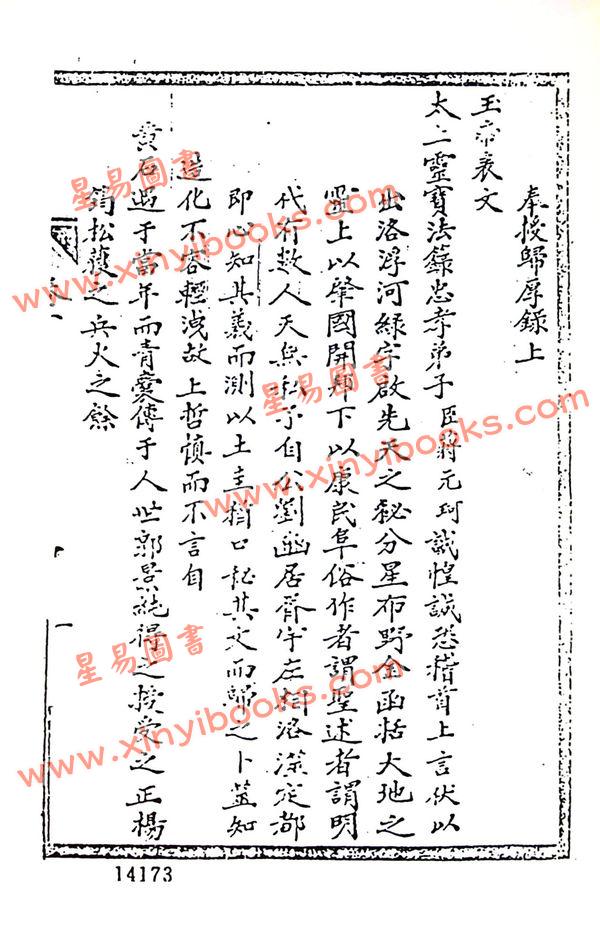 奉授歸厚錄上
玉帝表文
太上靈寶法籙忠孝弟子臣蔣元珂誠惶誠恐稽首上言伏以
出洛浮河綠字啟先天之秘分星布野金函括大地之
靈上以肇國開邦下以康民阜俗作者謂聖述者謂明
代有數人天無私予自公劉豳居胥宇左相洛深定都
即心知其義而測以土圭猶口秘其文而歸之卜蓋知
造化不容輕洩故上哲慎而不言自
黃石遇于當年而青囊傳于人世郭景純得之授受之正楊
筠松獲之兵火之餘
一
14173
星易圖書
www.xinyibooks.com
星易圖書
www.xinyibooks.com
星易圖書
www.xinyibooks.com